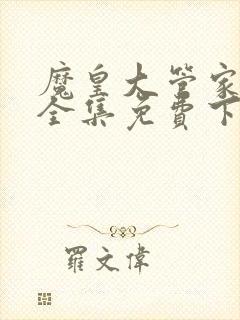 魔皇大管家
全集免費下
羅文偉